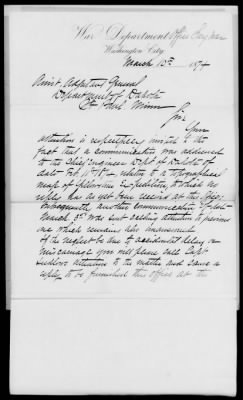 War Department Office
Washington City.
March 13th 1874
Asst. Adjutant General
Department of Dakota
St Paul Minn
Sir
Your
attention is respectfully invited to the
fact that a communication was addressed
to the Chief Engineer Dept of Dakota of
date Feb relative to a topographical
map of Yellowstone Expedition, to which no
reply has as yet been received at this Office.
Subsequently another communication of date
March 3rd was sent calling attention to previous
one which remains also unanswered.
If the neglect be due to accidental delay or
miscarriage you will please call Capt
attention to the matter and cause a
reply to be furnished this office at the